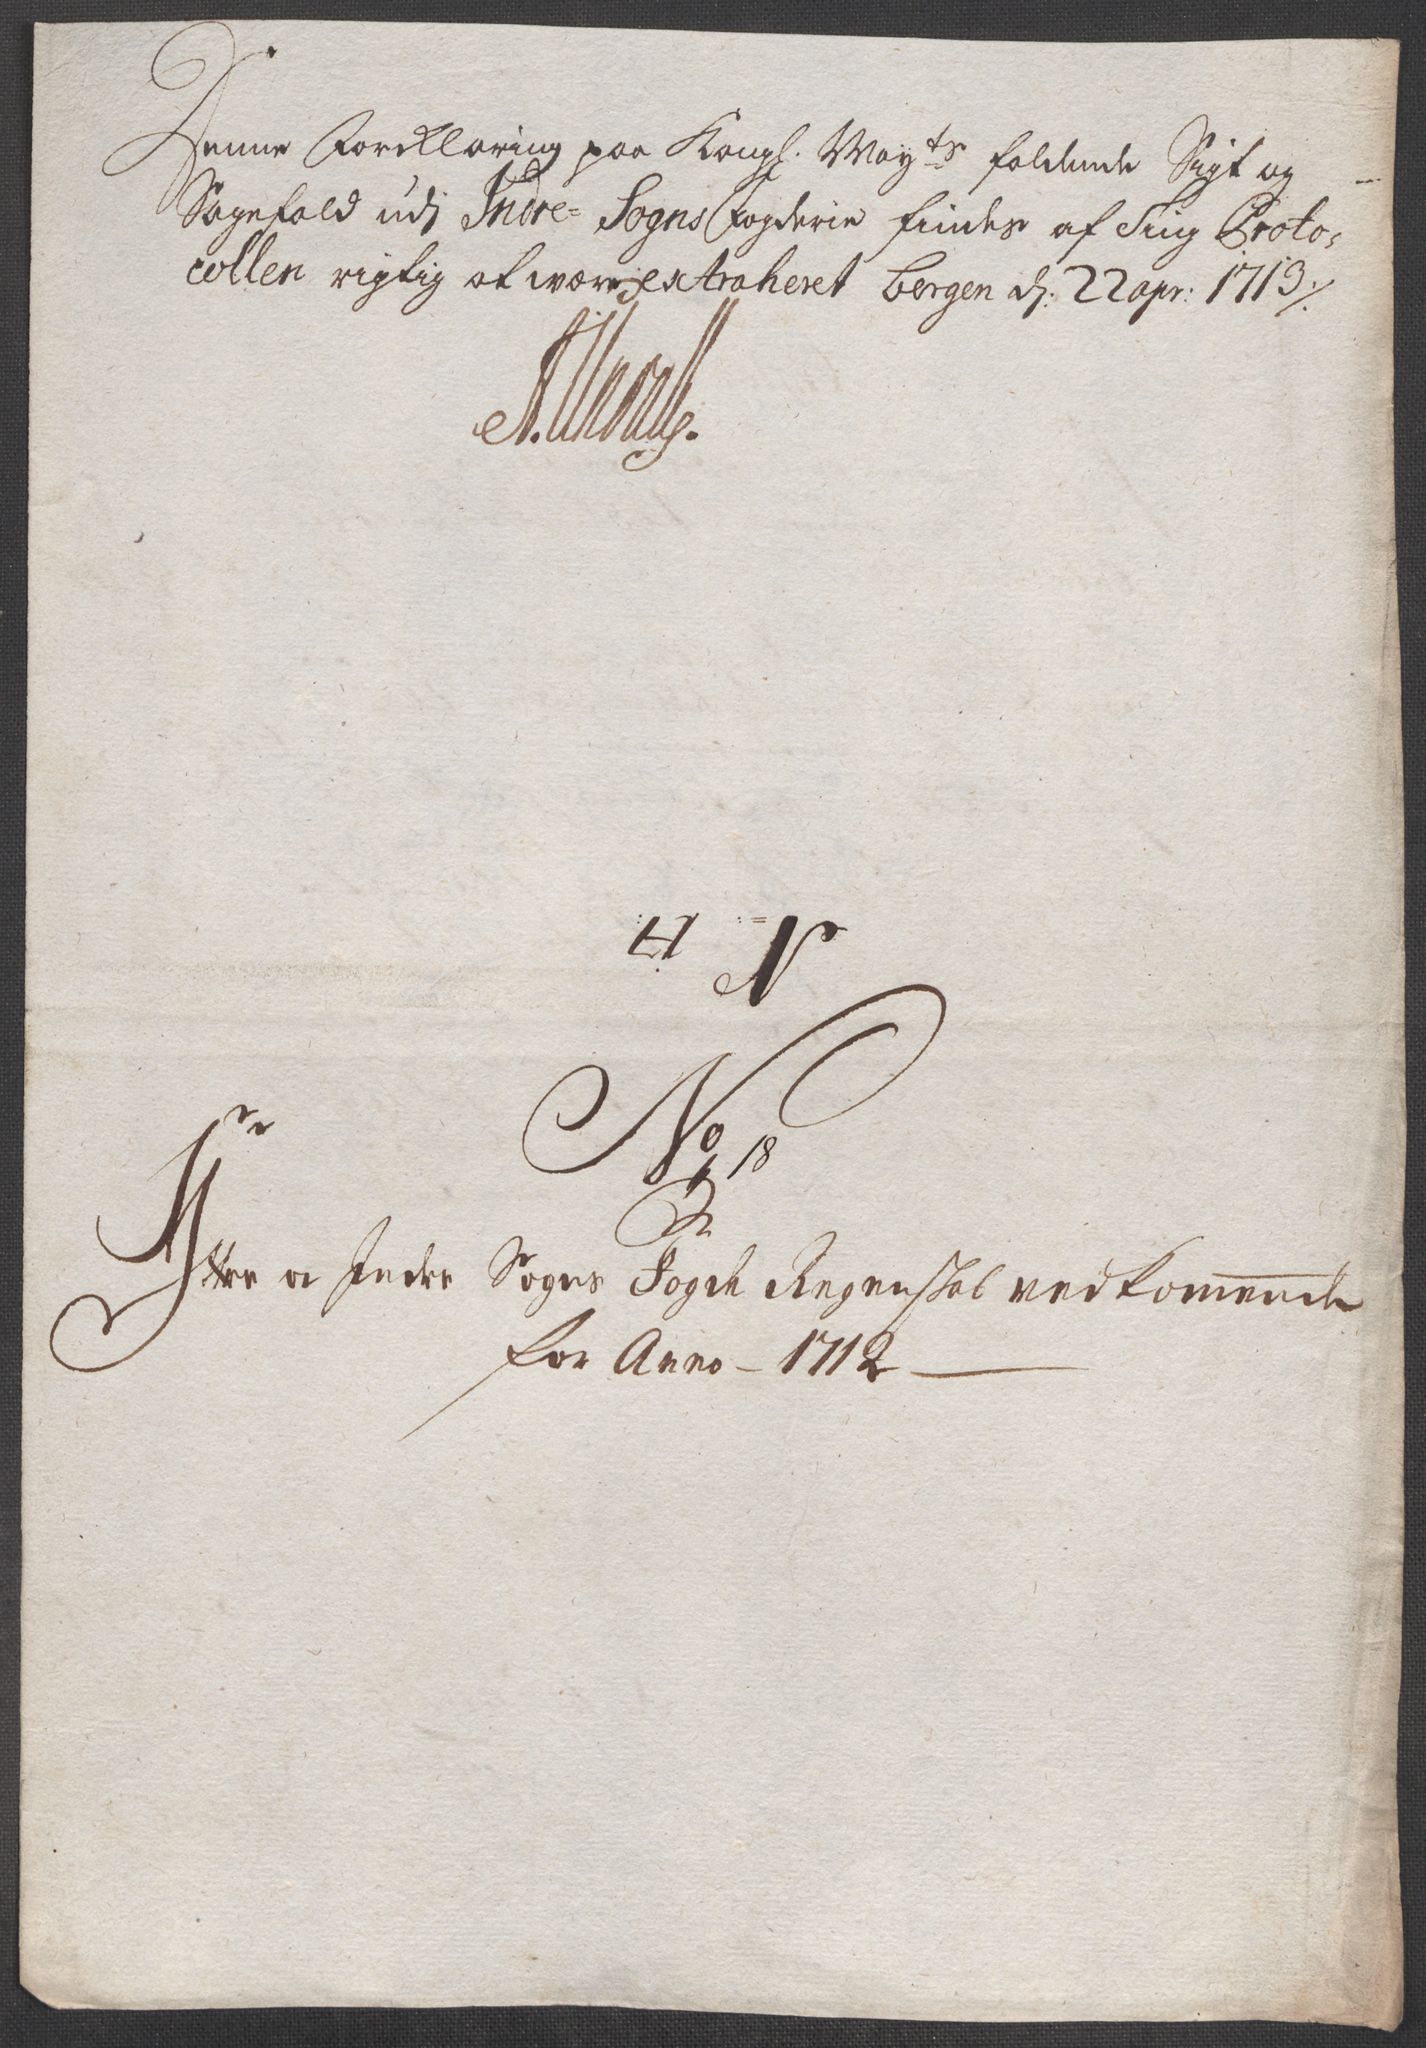 Denne Forcklaring paa Kongl. May:ts faldende Sigt og
Sagefald udj Indre= Sogns Fogderie findes af Ting Proto=
collen rigtig at være extraheret Bergen d: 22 apr: 1713 ./.
N
No 18
Ytre oc Indre Sogns Fogde Regenskab vedkommende
for Anno – 1712